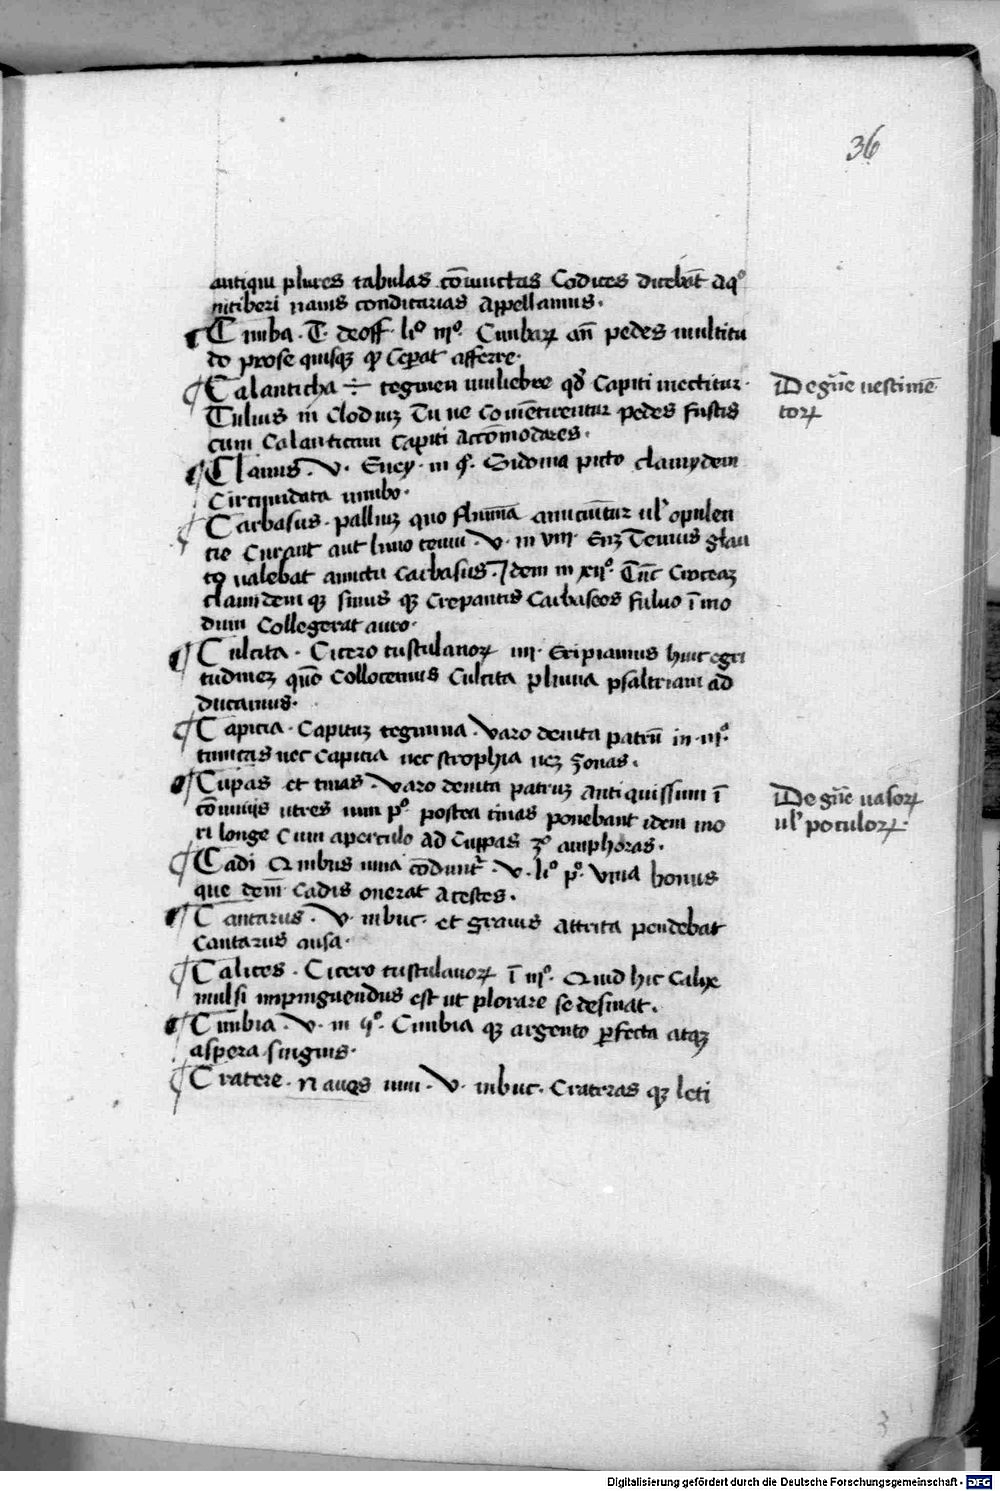 36
antiqui plures tabulas cōiunctas Codices dicebāt Aqº
nitiberi nauis conditarias Appellamus.
¶ Cimba. T. deoff. liº iijº. Cimbaꝝ añ pedes multitu
do prose quisqꝫ ꝙ Ceperat afferre.
¶ Calanticha ÷ tegmen muliebre qd̄ Capiti inectitur.
Tulius in Clodiuꝫ Tu ne Comētirentur pedes fustis
cum Calanticam Capiti Accōmodares.
De gn̄e uestimē
toꝝ
¶ Clamis. V. Eney. in q̄. Sidonia picto clamydem
Circūdata limbo.
¶ Carbasus. palliuꝫ quo flumina amiciūtur ul' opulen
tie Curant aut lino tenui. V. in VIII. Enꝫ Tenuis glau
co ualebat amictu Carbasus. Idem in xijº. Tūc Croceaꝫ
clamidem qꝫ sinus qꝫ Crepantis Carbaseos fuluo ī mo
dum Collegerat auro.
¶ Culcita. Cicero tusculanoꝝ iiij. Eripiamus huic egri
tudineꝫ quō Collocemus Culcita plumia psaltriam ad
ducamus.
¶ Capicia. Capituꝫ tegmina. Varo deuita patrū in iijº.
tunicas nec Capicia nec strophia neꝫ Zonas.
¶ Cupas et tinas. Varo deuita patruꝫ Antiquissimi ī
cōuiuijs utres uini pº. postea tinas ponebant idem mo
ri longe Cum aperculo ad Cuppas ꝫº amphoras.
De gn̄e uasoꝝ
ul' poculoꝝ.
¶ Cadi Quibus uina cōdunt᷑. V. liº pº. Vina bonus
que deīn Cadis onerat Acestes.
¶ Cantarus. V. inbuc. et grauis Attrita pendebat
Cantarus ansa.
¶ Calices. Cicero tusculanoꝝ ī iijº. Quid hic Calixe
mulsi impinguendus est ut plorare se desinat.
¶ Cimbia. V. in qº. Cimbia qꝫ argento p̱fecta atqꝫ
aspera singnis.
¶ Cratere. N aues uini. V. inbuc. Crateras qꝫ leti
3
Digitalisierung gefördert durch die Deutsche Forschungsgemeinschaft - DFG